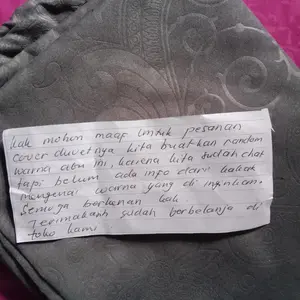 kak mohon maaf untuk pesanan
cover duvetnya kita buatkan random
warna abu ini, karena kita sudah chat
tapi belum ada info dari kakak
mengenai warna yang di inginkan.
Semoga berkenan kak
Terimakasih sudah berbelanja di
toko kami